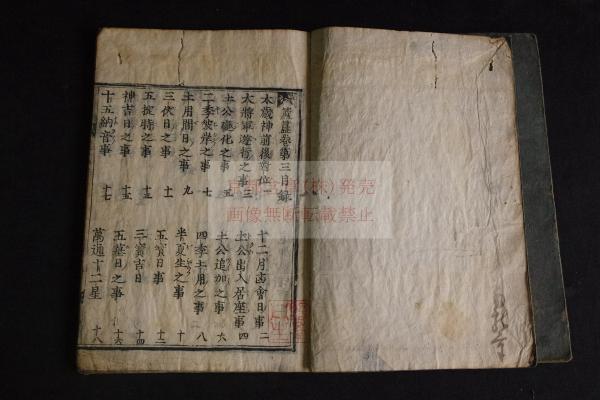 簠簋巻第三目録
太歳神前後對位 一
十二月凶會日事 二
大將軍遊行之事 三
土公出入居座事 四
土公變化之事 五
土公追加之事 六
二季彼岸之事 七
四季土用之事 八
土用間日之事 九
半夏生之事 十
三伏日之事 十一
五寳日之事 十二
五掟時之事 十三
三寳吉日 十四
神吉日之事 十五
五墓日之事 十六
十五納音事 十七
萬通十二星 十八
(株)発売
画像無断転載禁止